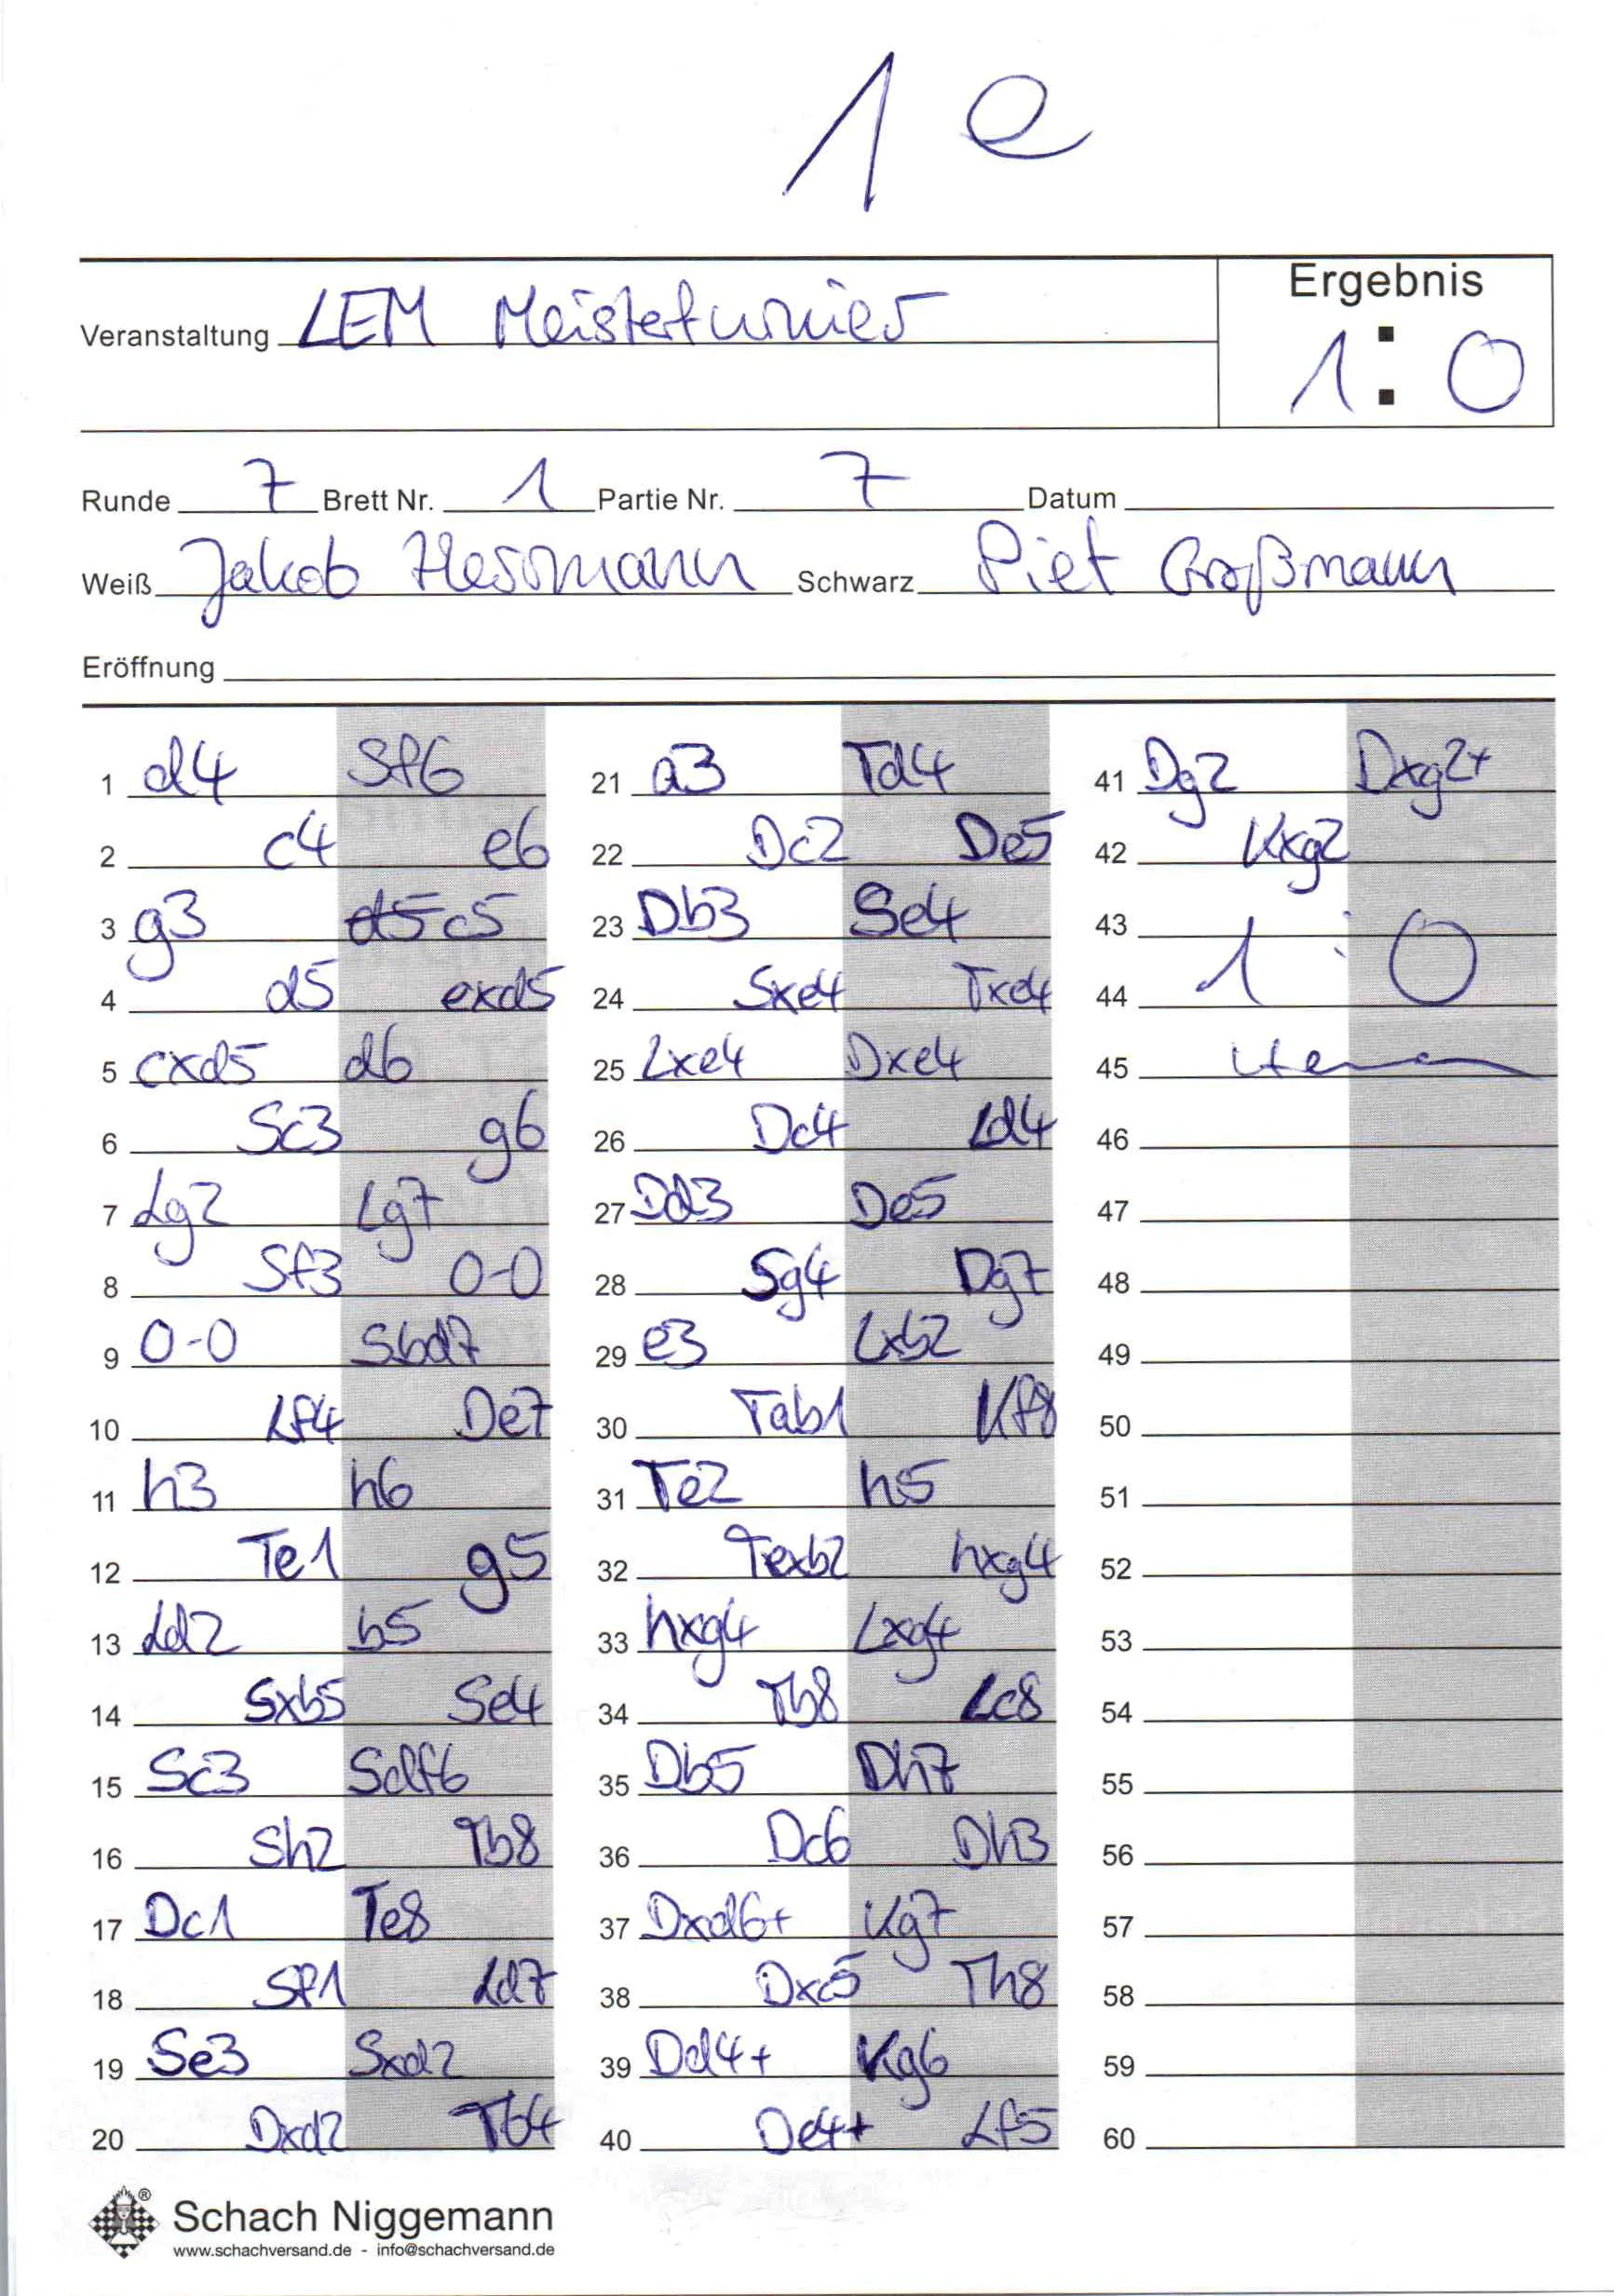 1e
Ergebnis
Veranstaltung LEM Meisterturnier
1:0
Runde 7 Brett Nr. 1 Partie Nr. 7 Datum
Weiß Jakob Herrmann Schwarz Piet Großmann
Eröffnung
1 d4 Sf6 21 a3 Td4 41 Dg2 Dxg2+
2 c4 e6 22 Dc2 De5 42 Kxg2
3 g3 d5 c5 23 Db3 Se4 43
4 d5 exd5 24 Sxe4 Txe4 44 1:0
5 cxd5 d6 25 Lxe4 Dxe4 45
6 Sc3 g6 26 Dc4 Ld4 46
7 Lg2 Lg7 27 Dd3 De5 47
8 Sf3 0-0 28 Sg4 Dg7 48
9 0-0 Sbd7 29 e3 Lxb2 49
10 Lf4 De7 30 Tab1 Kf8 50
11 h3 h6 31 Te2 h5 51
12 Te1 g5 32 Texb2 hxg4 52
13 Ld2 b5 33 hxg4 Lxg4 53
14 Sxb5 Se4 34 Tb8 Lc8 54
15 Sc3 Sdf6 35 Db5 Dh7 55
16 Sh2 Tb8 36 Dc6 Dh3 56
17 Dc1 Te8 37 Dxd6+ Kg7 57
18 Sf1 Ld7 38 Dxc5 Th8 58
19 Se3 Sxd2 39 Dd4+ Kg6 59
20 Dxd2 Tb4 40 De4+ Lf5 60
Schach Niggemann
www.schachversand.de - info@schachversand.de